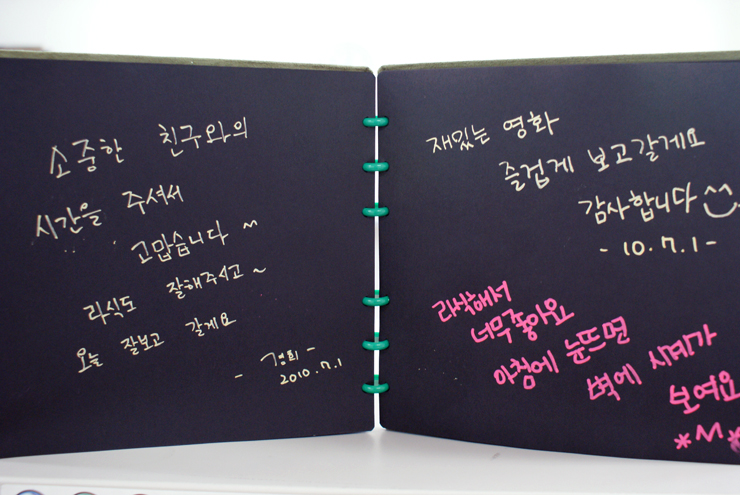 소중한 친구와의
시간을 주셔서
고맙습니다 ~
라식도 잘해주시고 ~
오늘 잘보고 갈게요
- 경희 -
2010.7.1
재밌는 영화
즐겁게 보고갈게요
감사합니다 ^^
- 10.7.1 -
라식해서
너무좋아요
아침에 눈뜨면
벽에 시계가
보여요
*^^*